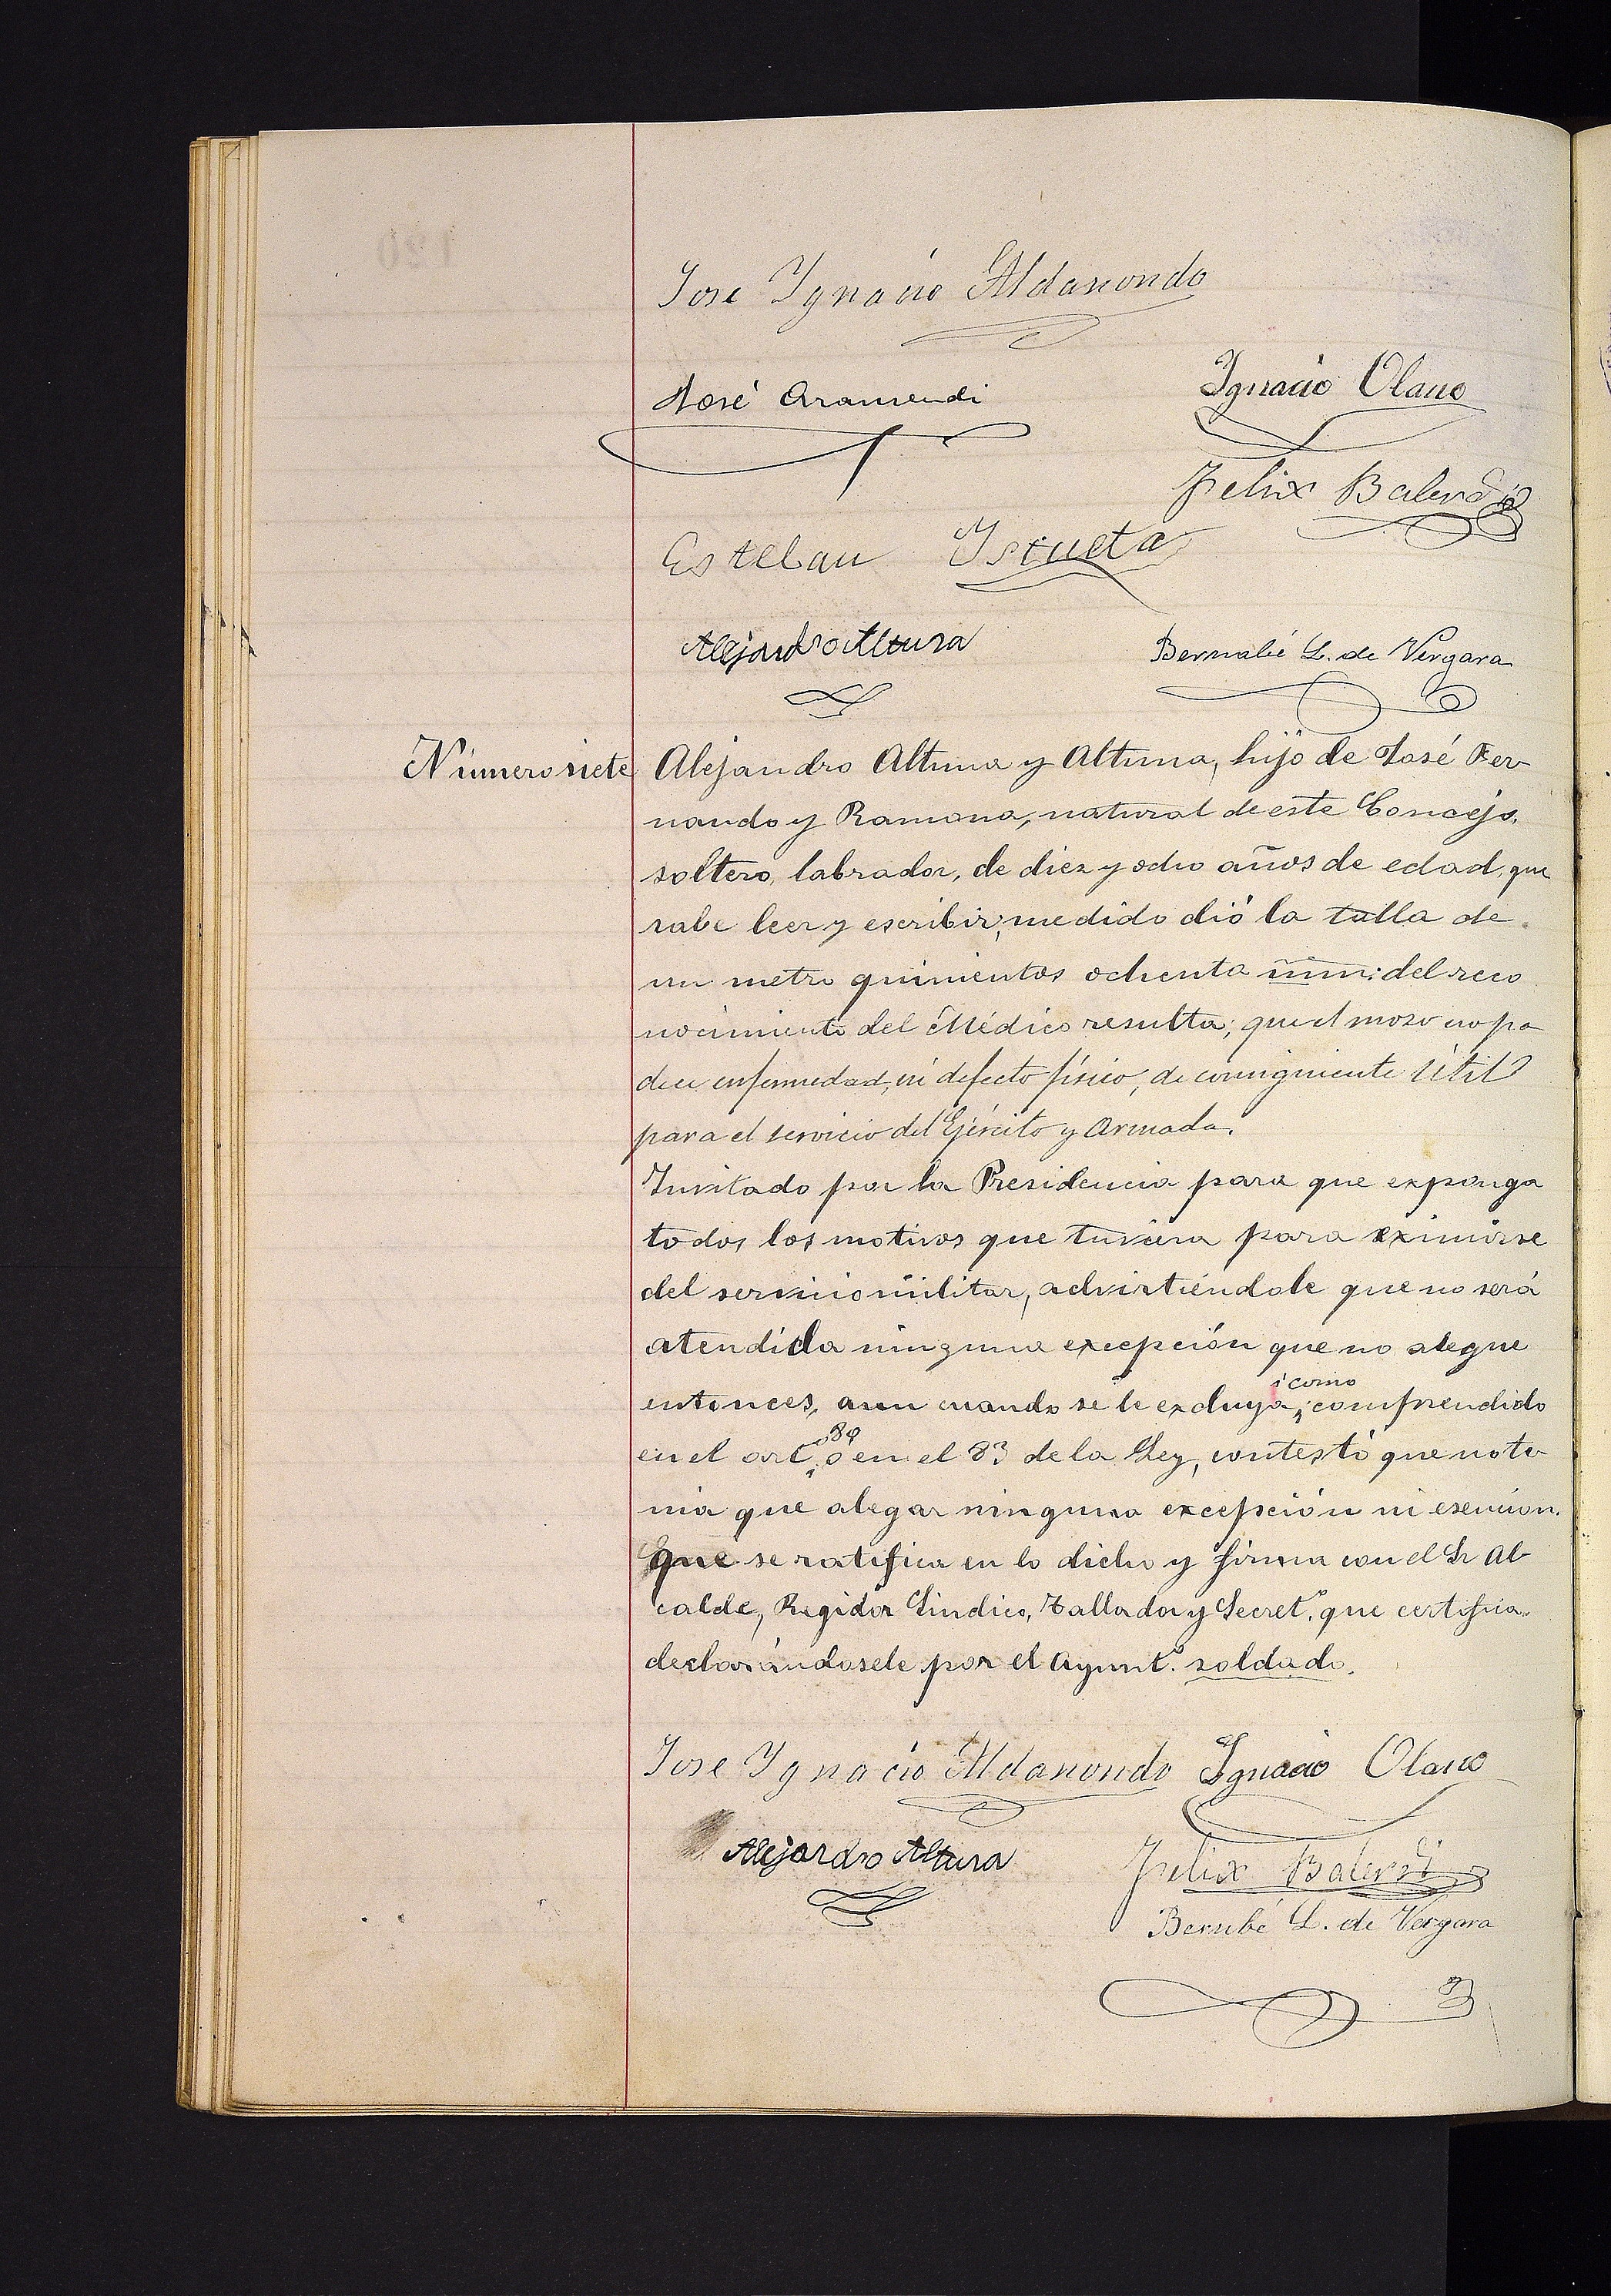 Jose Ygnacio Aldanondo
José Aramendi
Ignacio Olano
Felix Balerdi
Esteban Iscueta
Alejandro Altuna
Bernabé L. de Vergara
Número siete
Alejandro Altuna y Altuna, hijo de José Fer-
nando y Ramona, natural de este Concejo,
soltero, labrador, de diez y ocho años de edad, que
sabe leer y escribir; medido dió la talla de
un metro quinientos ochenta mm: del reco
nocimiento del Médico resulta; que el mozo no pa
dece enfermedad, ni defecto físico, de consiguiente útil
para el servicio del Ejército y Armada.
Invitado por la Presidencia para que exponga
todos los motivos que tuviera para eximirse
del servicio militar, advirtiéndole que no será
atendida ninguna excepción que no alegue
entonces, aun cuando se le excluya, como comprendido
en el art. 80 ó en el 83 de la Ley, contestó que no te-
nia que alegar ninguna excepción ni esencion.
Que se ratifica en lo dicho y firma con el Sr Al-
calde, Regidor Síndico, Tallador y Secret.º que certifica.
declarándosele por el Ayunt.º soldado.
Jose Ygnacio Aldanondo Ignacio Olano
Alejandro Altuna
Felix Balerdi
Bernbé L. de Vergara